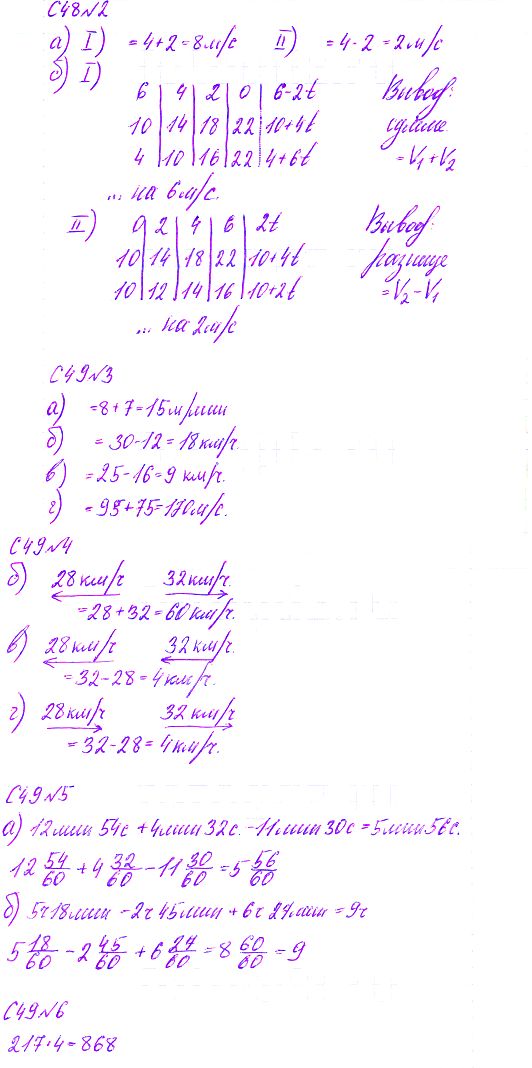 С48№2
а) I) = 4+2=8м/с II) = 4-2=2м/с
б) I)
6 4 2 0 6-2t Вывод:
10 14 18 22 10+4t сумме
4 10 16 22 4+6t =V1+V2
... на 6м/с.
II) 0 2 4 6 2t Вывод:
10 14 18 22 10+4t разнице
10 12 14 16 10+2t =V2-V1
... на 2м/с
С49№3
а) =8+7=15м/мин
б) =30-12=18км/ч.
в) =25-16=9 км/ч.
г) =95+75=170м/с.
С49№4
б) 28км/ч 32км/ч.
=28+32=60км/ч.
в) 28км/ч 32км/ч.
=32-28=4км/ч.
г) 28км/ч 32км/ч
=32-28=4км/ч.
С49№5
а) 12мин 54с +4мин 32с. -11мин 30с =5мин 56с.
12 54/60 + 4 32/60 - 11 30/60 = 5 56/60
б) 5ч 18мин -2ч 45мин +6ч 27мин =9ч
5 18/60 - 2 45/60 + 6 27/60 = 8 60/60 = 9
С49№6
217·4=868